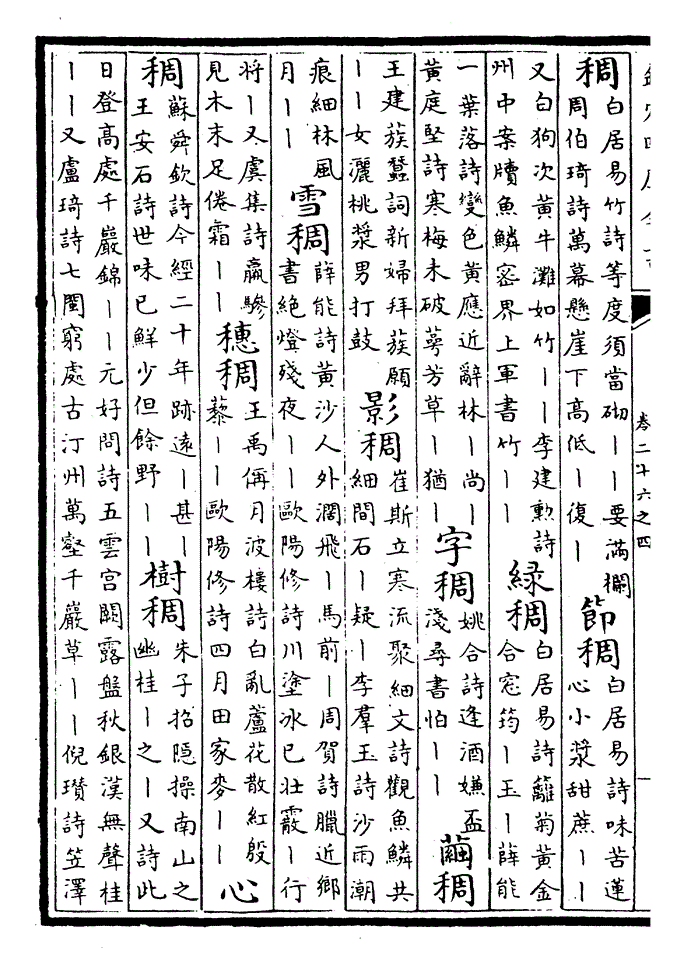 卷二十六之四
稠
白居易竹詩等度須當砌丨丨要滿欄
周伯琦詩萬幕懸崖下高低丨復丨
節稠
白居易詩味苦蓮
心小漿甜蔗丨丨
又白狗次黃牛灘如竹丨丨李建勲詩
州中案牘魚鱗密界上軍書竹丨丨
綠稠
白居易詩籬菊黃金
合窓筠丨玉丨薛能
一葉落詩變色黃應近辭林丨尚丨
黃庭堅詩寒梅未破萼芳草丨猶丨
字稠
姚合詩逢酒嫌盃
淺尋書怕丨丨
繭稠
王建簇蠶詞新婦拜簇願
丨丨女灑桃漿男打鼓
影稠
崔斯立寒流聚細文詩觀魚鱗共
細間石丨疑丨李羣玉詩沙雨潮
痕細林風
月丨丨
雪稠
薛能詩黃沙人外濶飛丨馬前丨周賀詩臘近鄉
書絶燈殘夜丨丨歐陽修詩川塗冰已壯霰丨行
將丨又虞集詩羸驂
見木末足倦霜丨丨
穗稠
王禹偁月波樓詩白亂蘆花散紅殷
藜丨丨歐陽修詩四月田家麥丨丨
心
稠
蘇舜欽詩今經二十年跡遠丨甚丨
王安石詩世味已鮮少但餘野丨丨
樹稠
朱子招隱操南山之
幽桂丨之丨又詩此
日登高處千巖錦丨丨元好問詩五雲宮闕露盤秋銀漢無聲桂
丨丨又盧琦詩七閩窮處古汀州萬壑千巖草丨丨倪瓚詩笠澤